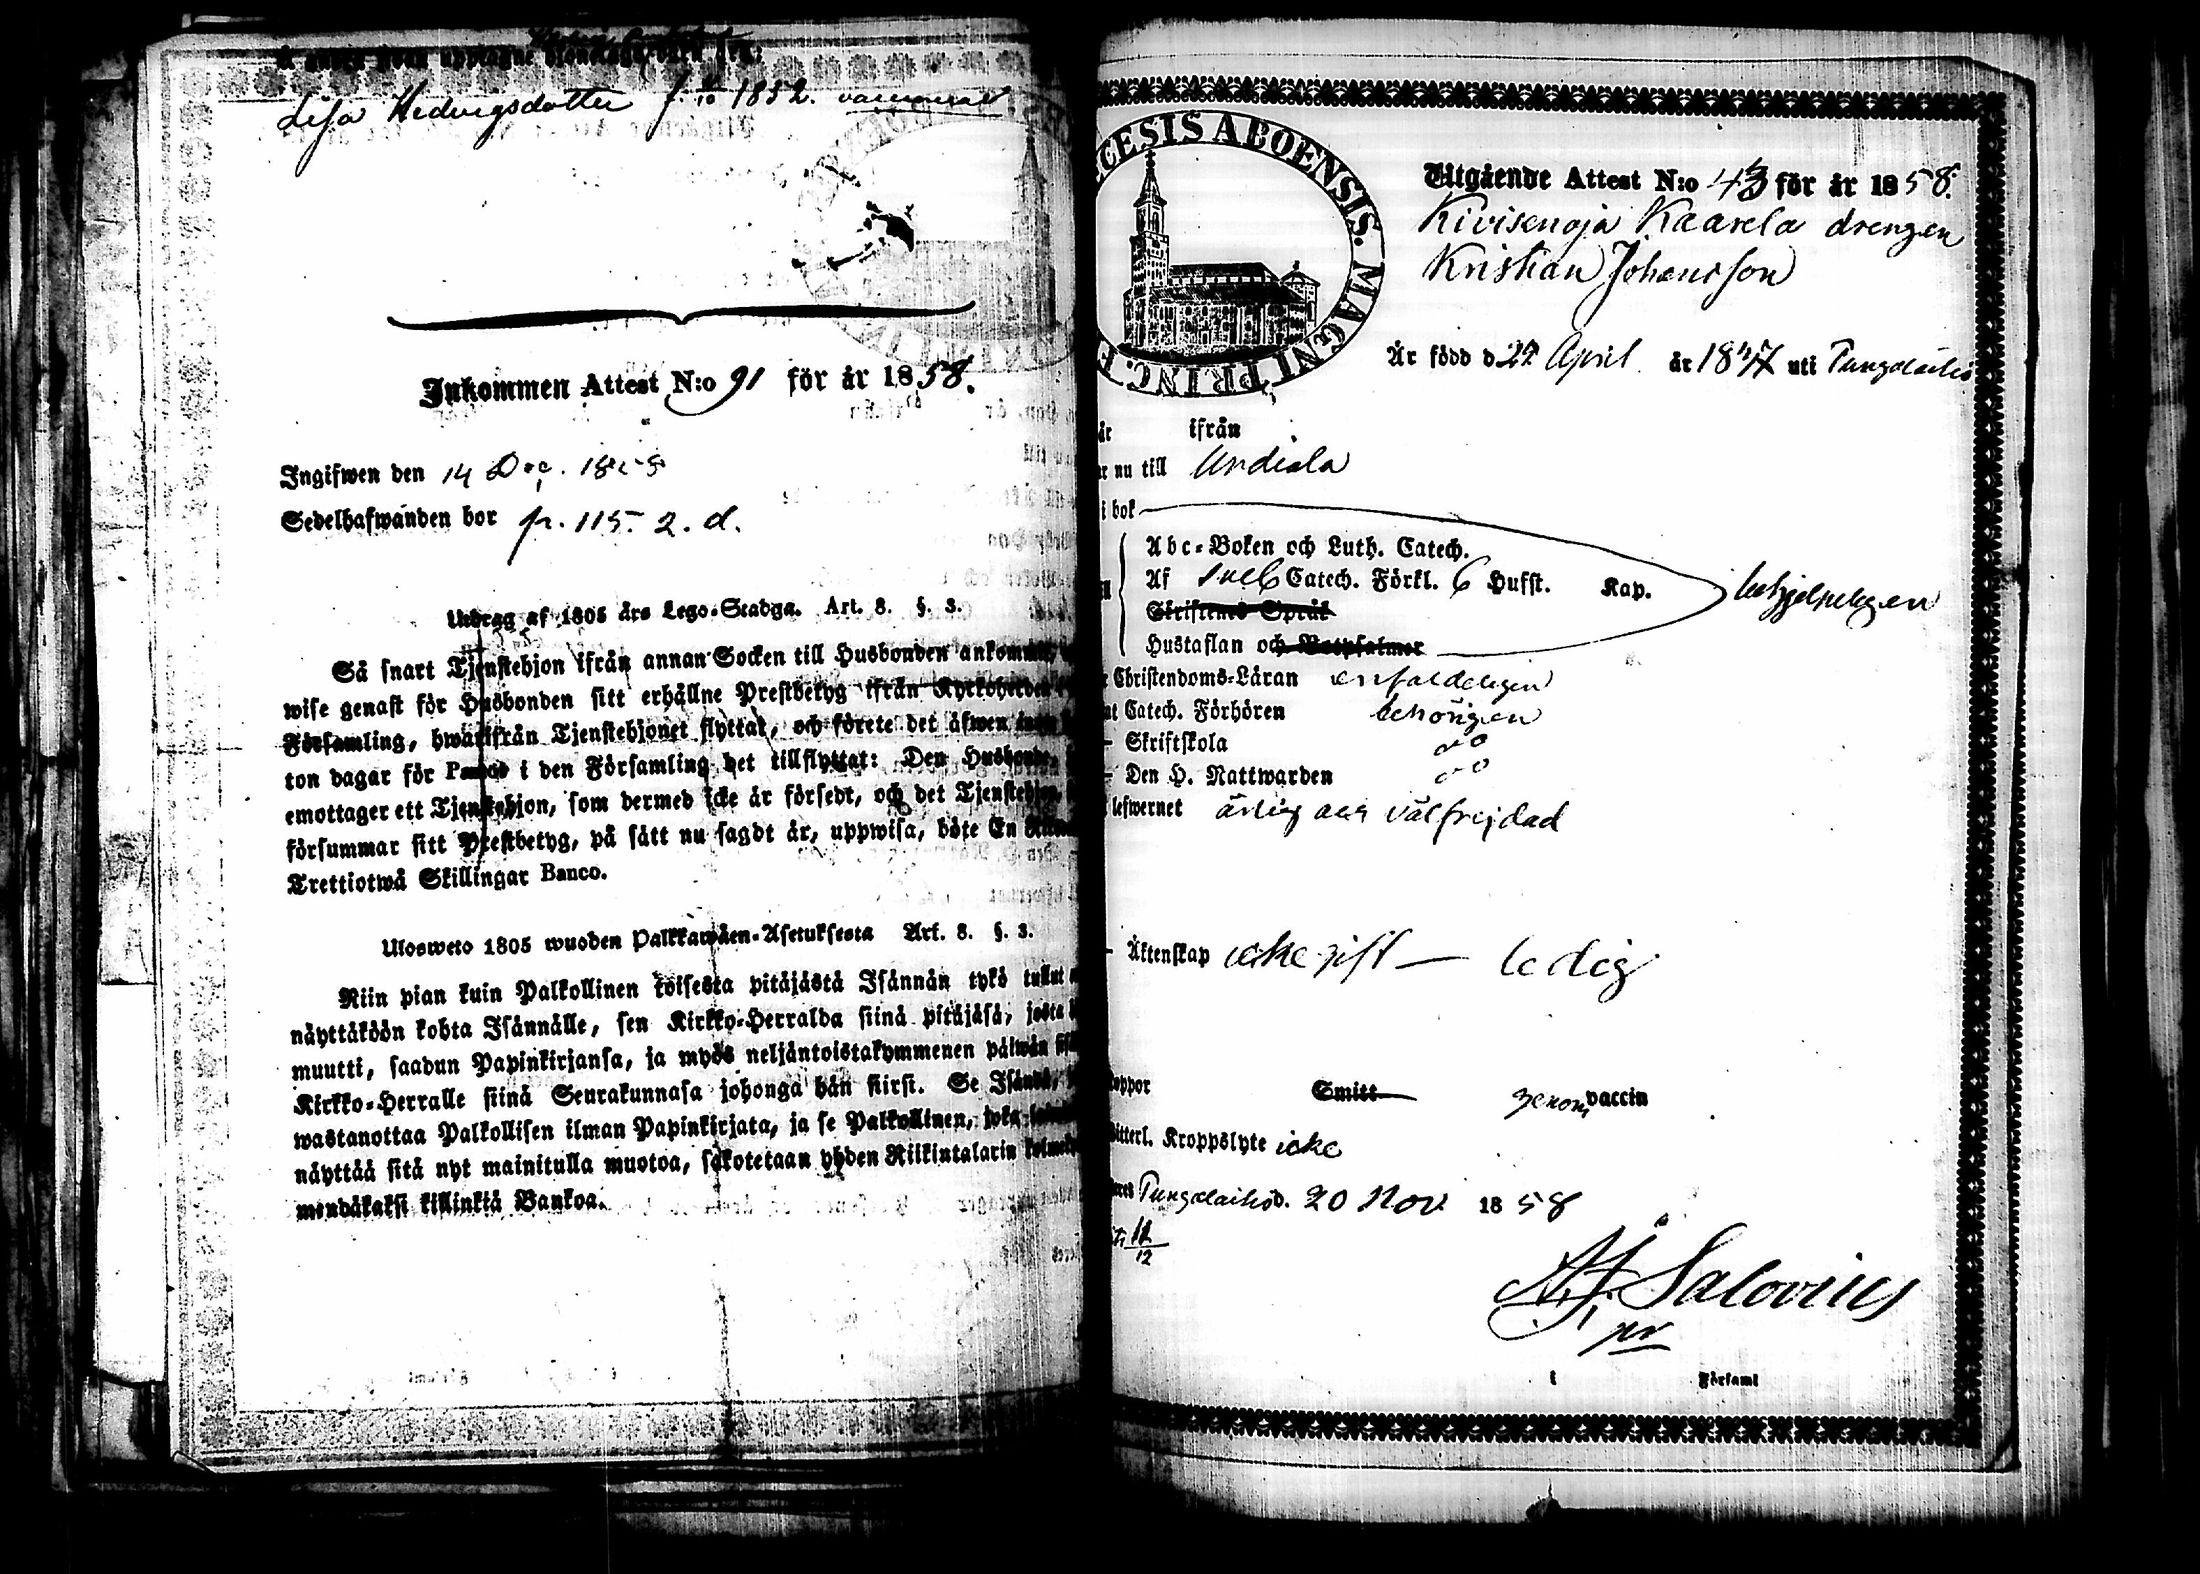 Lisa Hedvigsdotter f. 6/10 1852. vaccinerad
Inkommen Attest N:o 91 för år 1858.
Ingifwen den 14 Dec. 1858
Sedelhafwanden bor p. 115. 2. d.
Utdrag af 1805 års Lego-Stadga. Art. 8. §. 3.
Så snart Tjenstehjon ifrån annan Socken till Husbonden ankommit,
wise genast för Husbonden sitt erhållne Prestbetyg ifrån Kyrkoherden i
Församling, hwarifrån Tjenstehjonet flyttat, och förete det äfwen inom
ton dagar för Pastor i den Församling det tillflyttat: Den Husbonde,
emottager ett Tjenstehjon, som dermed icke är försedt, och det Tjenstehjon,
försummar sitt Prestbetyg, på sätt nu sagdt är, uppwisa, böte En
Trettiotwå Skillingar Banco.
Ulosweto 1805 wuoden Palkkawäen-Asetuksesta Art. 8. §. 3.
Niin pian kuin Palkollinen toisesta pitäjästä Isännän tykö tullut
näyttäköön kohta Isännälle, sen Kirkko-Herralda siinä pitäjäsä, josta
muutti, saadun Papinkirjansa, ja myös neljäntoistakymmenen päiwän
Kirkko-Herralle siinä Seurakunnasa johonga hän siirsi. Se Isändä,
wastanottaa Palkollisen ilman Papinkirjata, ja se Palkollinen, joka
näyttää sitä nyt mainitulla muotoa, sakotetaan yhden Riikintalarin
mendäkaksi killinkiä Bankoa.
CESIS ABOENSIS. MAGNI PRINC. F
Utgående Attest N:o 43 för år 1858.
Kivisenoja Kaarela drengen
Kristian Johansson
Är född d 22 April år 1847 uti Pungalaitio
är ifrån
nu till Urdiala
i bok
Abc-Boken och Luth. Catech.
Af Sveb Catech. Förkl. 6 Hufst. Kap. behjelpeligen
Skriftens Språk
Hustaflan och Botpsalmer
Christendoms-Läran enfaldeligen
Catech. Förhören behörigen
Skriftskola do
Den H. Nattwarden do
lefwernet ärlig och välfrejdad
Äktenskap icke gift — ledig
koppor Smitt genom vaccin
Witterl. Kroppslyte icke
Pungalaitio d. 20 Nov 1858
11/12
Salovius
pr
i Församl